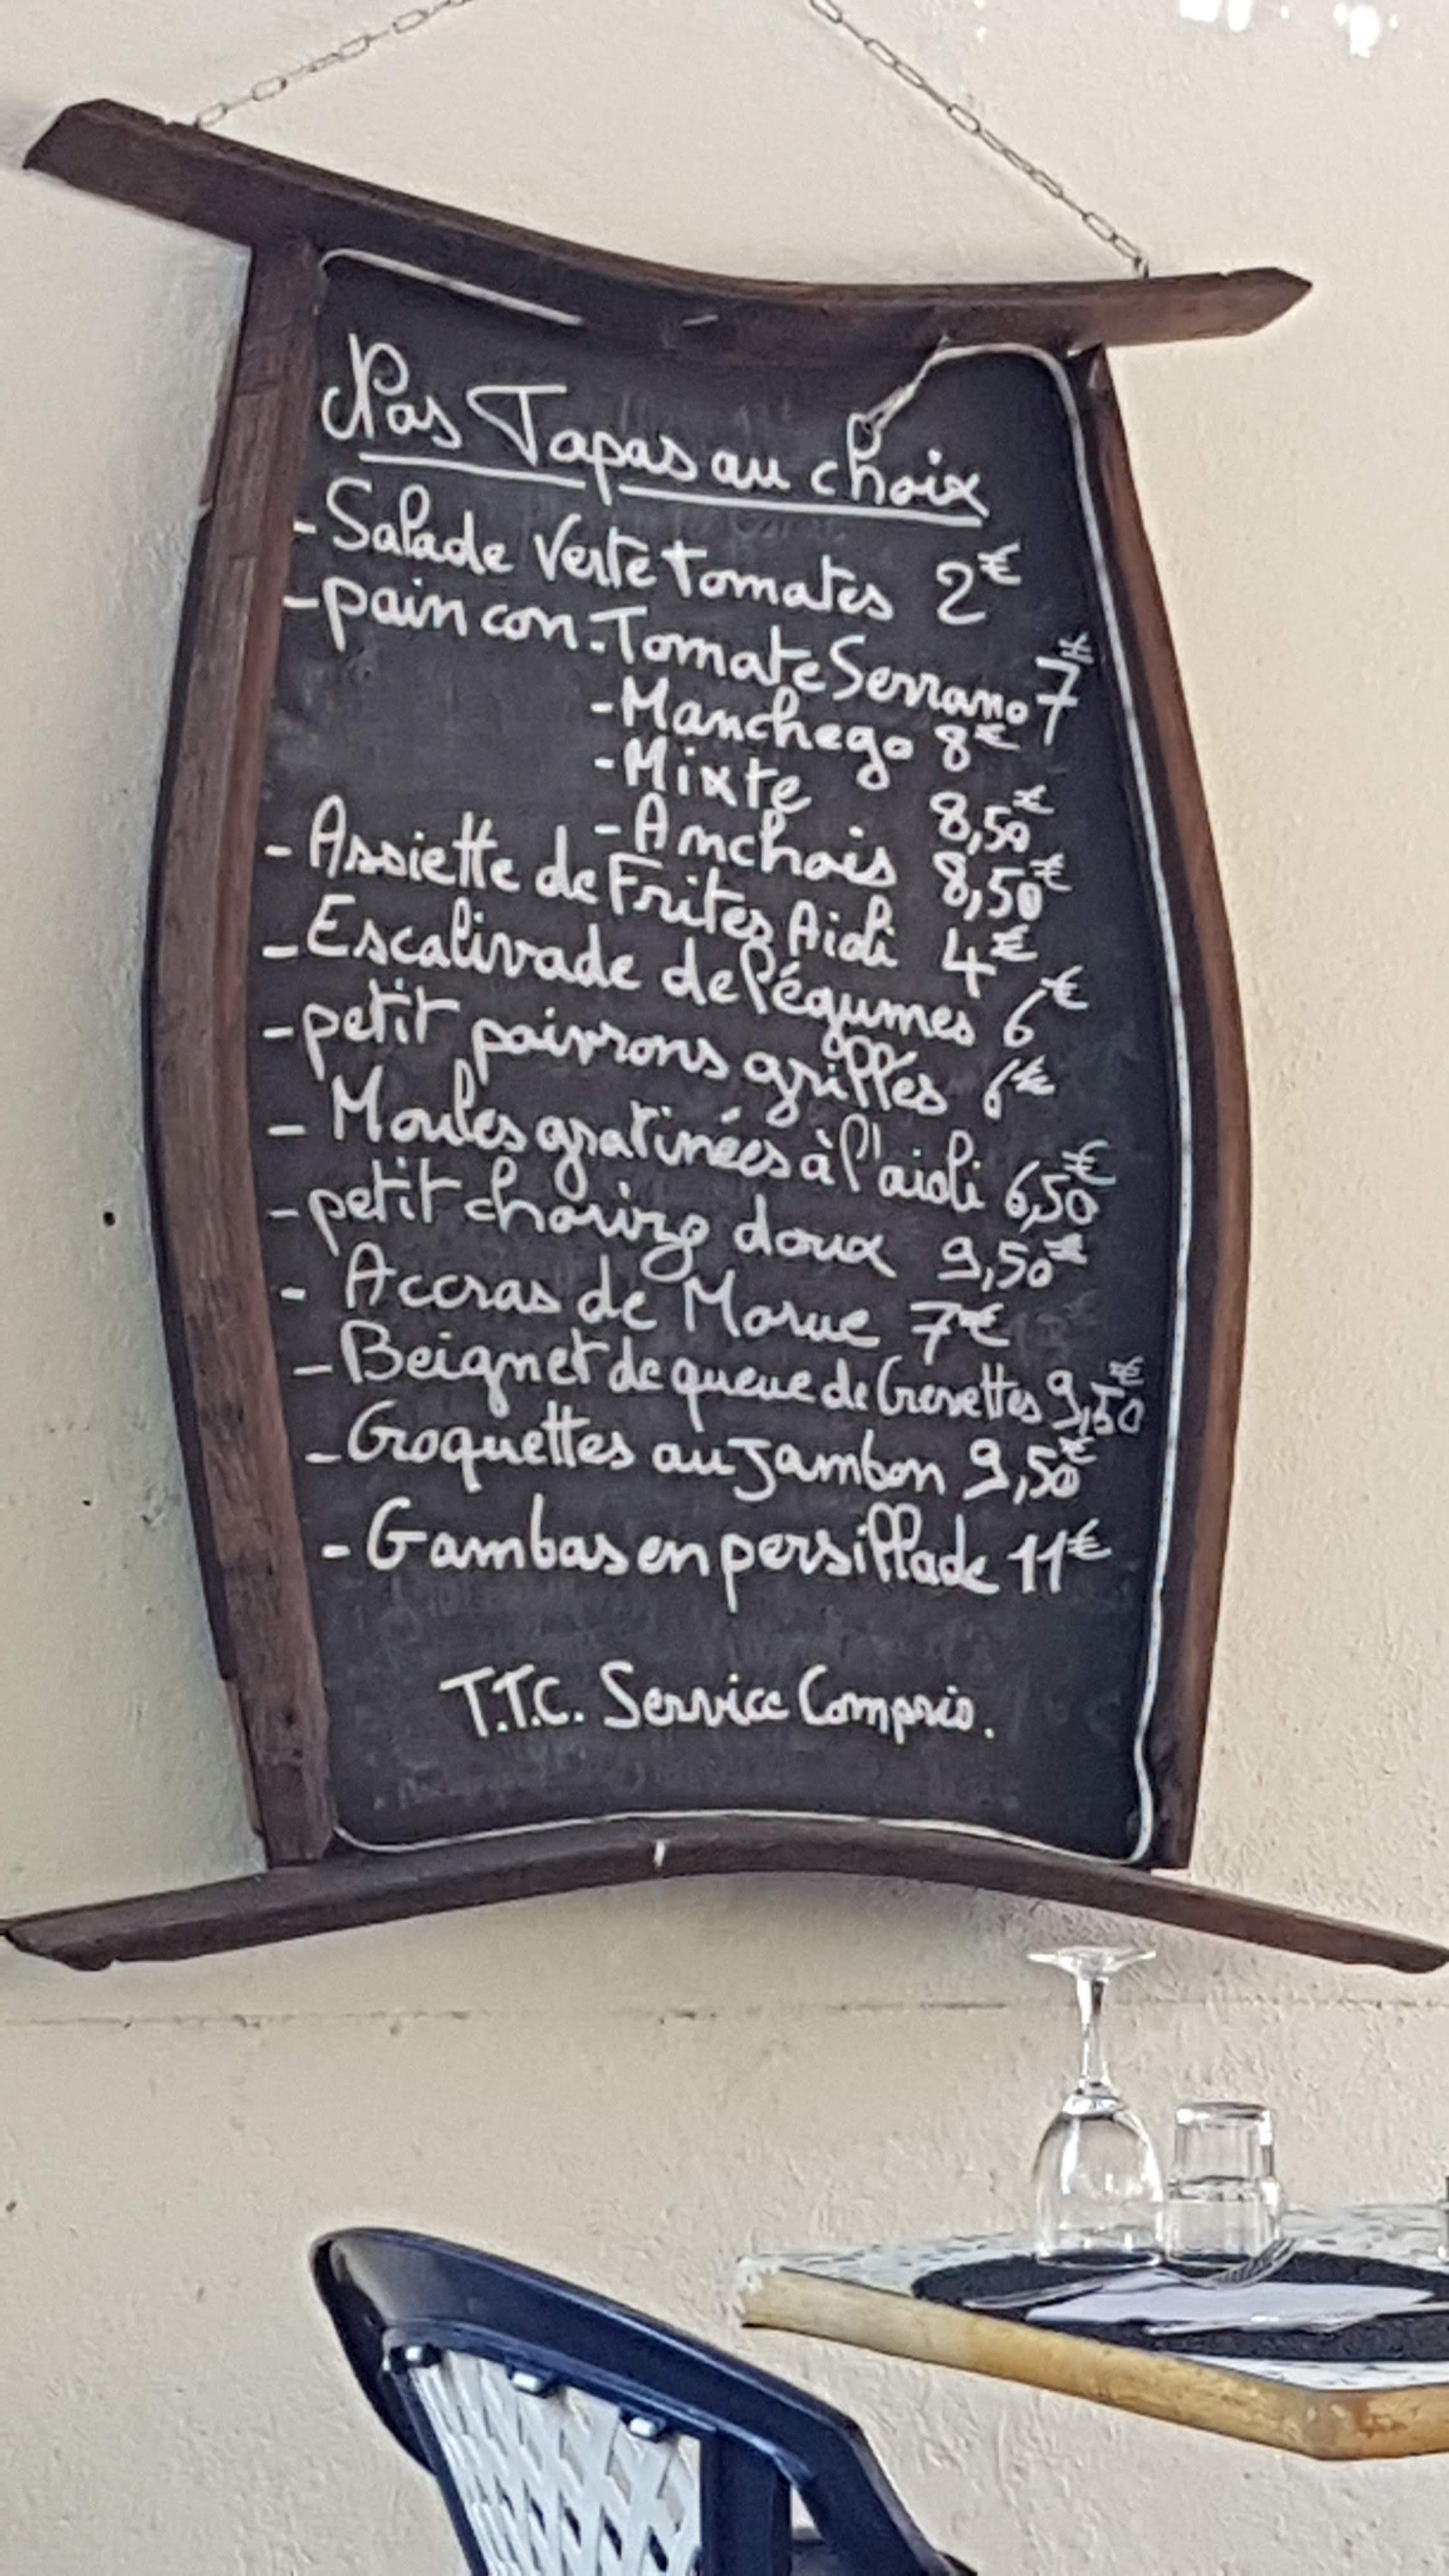 Nos Tapas au choix
- Salade Verte tomates 2€
- pain con: Tomate Serrano 7€
- Manchego 8€
- Mixte 8,50€
- Anchois 8,50€
- Assiette de Frites Aioli 4€
- Escalivade de légumes 6€
- petit poivrons grillés 6€
- Moules gratinées à l'aioli 6,50€
- petit chorizo doux 9,50€
- Accras de Morue 7€
- Beignet de queue de Crevettes 9,50€
- Croquettes au Jambon 9,50€
- Gambas en persillade 11€
T.T.C. Service Compris.